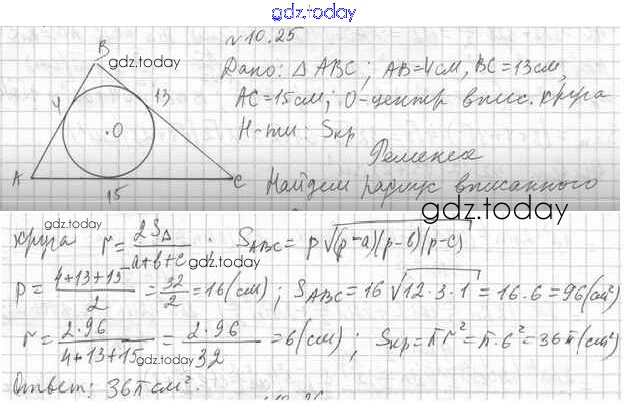 gdz.today
№10.25
B
gdz.today
Дано: △ABC; AB=4см, BC=13см,
4
13
AC=15см; O-центр впис. круга
O
Н-ти: Sкр
A
15
C
Найдем радиус вписанного
gdz.today
gdz.today
круга r=2S△/a+b+c; SABC=p√(p-a)(p-b)(p-c)
gdz.today
p=4+13+15/2=32/2=16(см); SABC=16√12·3·1=16·6=96(см²)
r=2·96/4+13+15=2·96/32=6(см); Sкр=πr²=π·6²=36π(см²)
gdz.today
Ответ: 36π см².